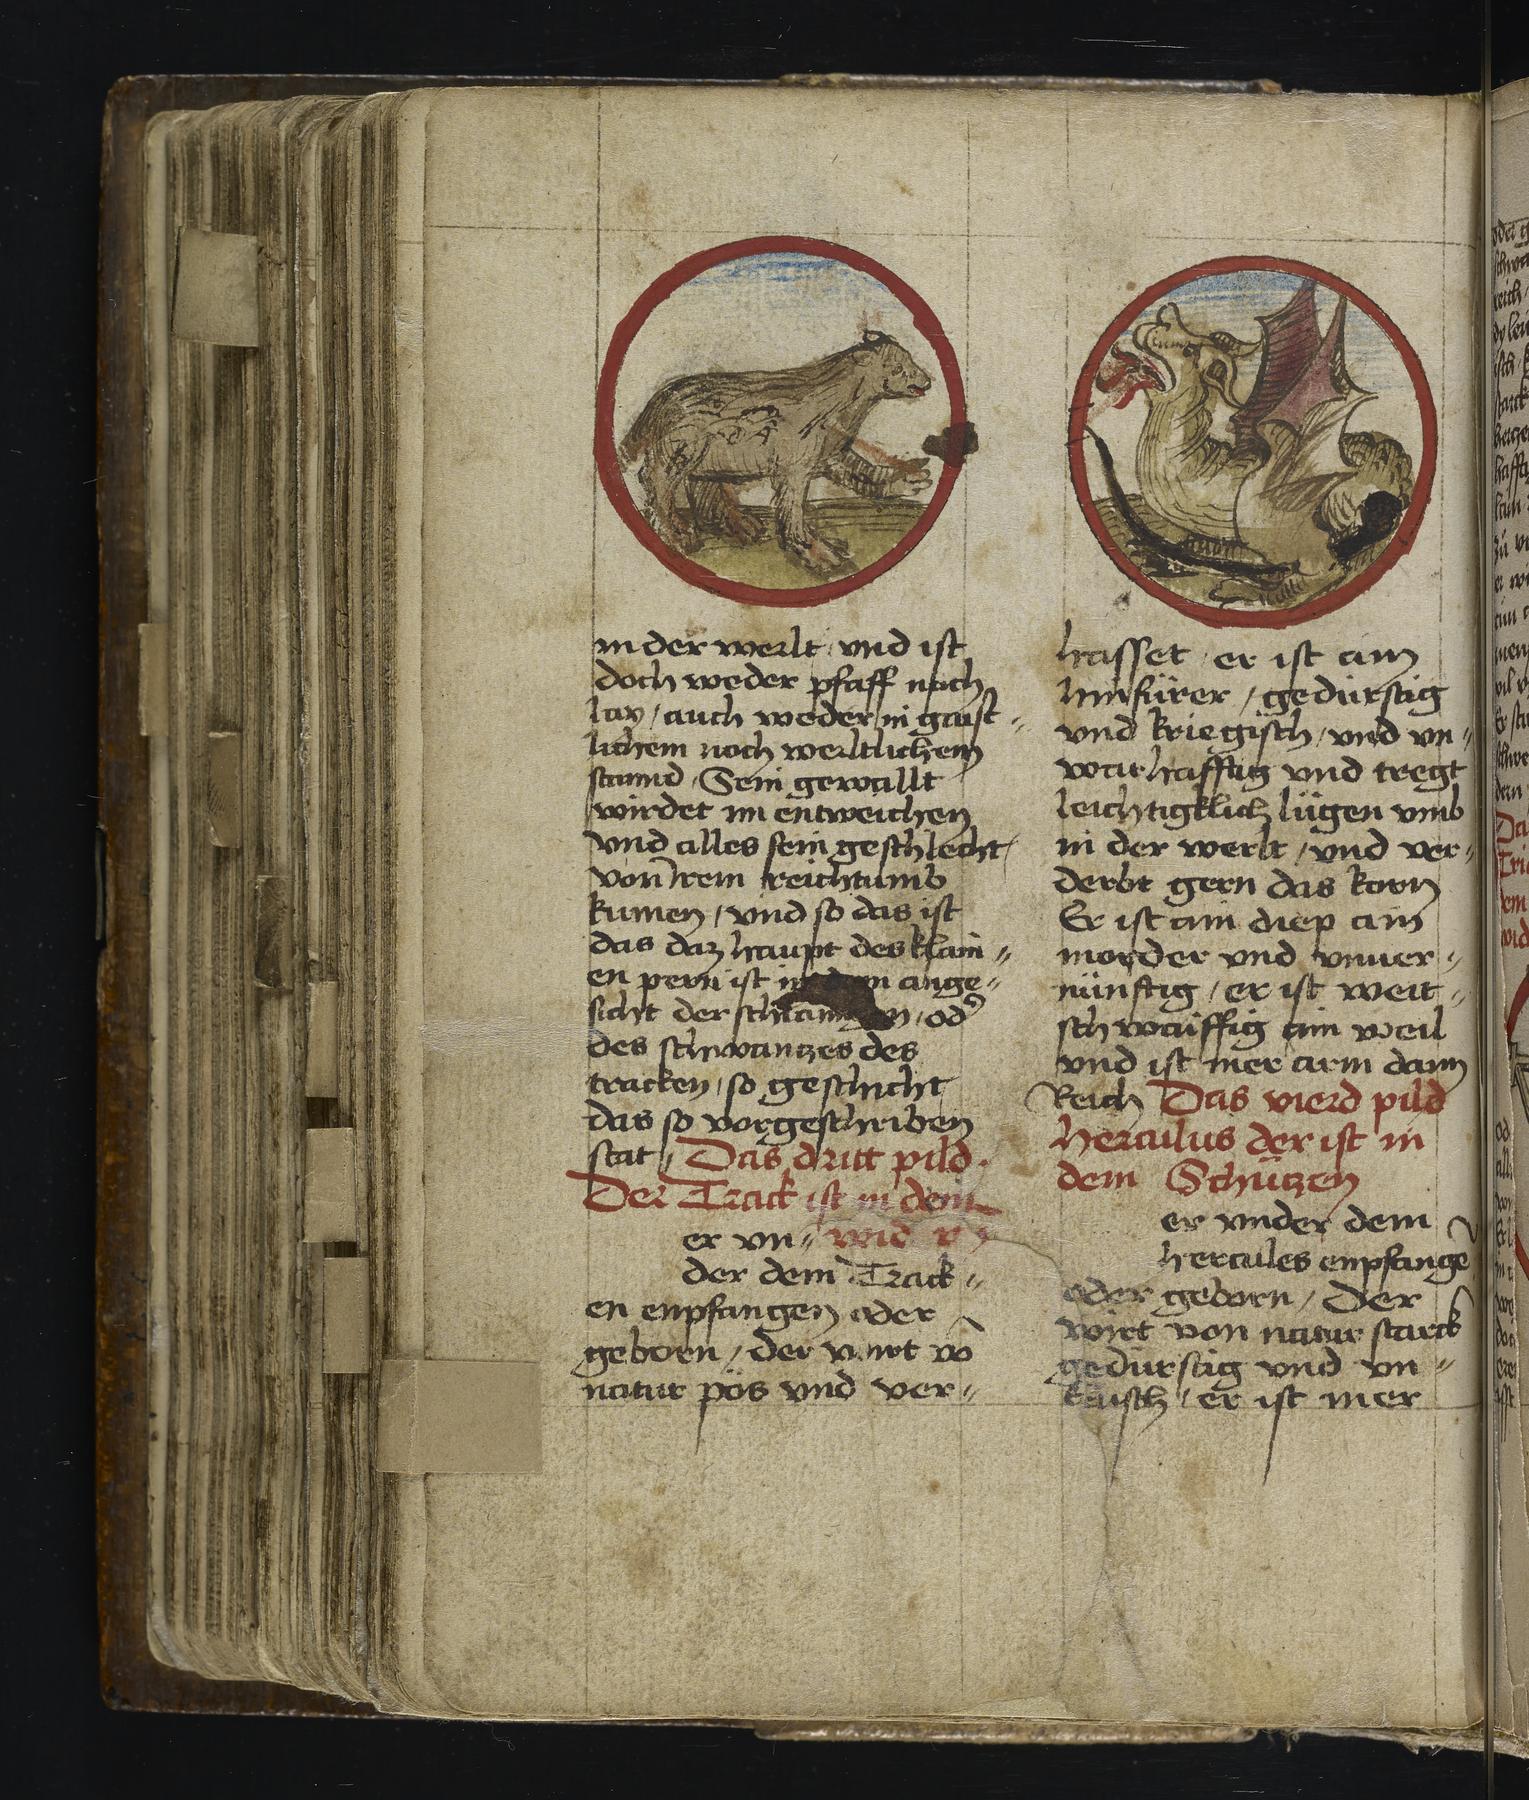 in der werlt / vnd ist
doch weder pfaff noch
lay / auch weder in gaist„
lichem noch werltlichem
stannd / Sein gewallt
wirdet im entweichen
vnd alles sein geschlecht /
von irem reichtumb
kumen / vnd so das ist
das daz haupt des klain„
en pern ist in dem ange„
sicht der schlanngen / od
des schwantzes des
tracken / so geschicht
das so vorgeschriben
stat / Das dritt pild.
Der Track ist in dem
er vn„ wid
der dem Track„
en enpfangen oder
geboren / der wirt vo
natur pös vnd ver„
hasset / er ist ain
hinfürer / gedürstig
vnd kriegisch / vnd vn„
warhafftig vnd tregt
leichtigklich lügen vmb
in der werlt / vnd ver„
derbt gern das korn
Er ist ain diep ain
morder vnd vnuer„
nünftig / er ist weit„
schwaiffig ain weil
vnd ist mer arm dann
Reich Das vierd pild
Herculus der ist in
dem Schützen
er vnder dem
hercules enpfange
oder geborn / Der
wirt von natur starck
gedürstig vnd vn„
keusch / er ist mer